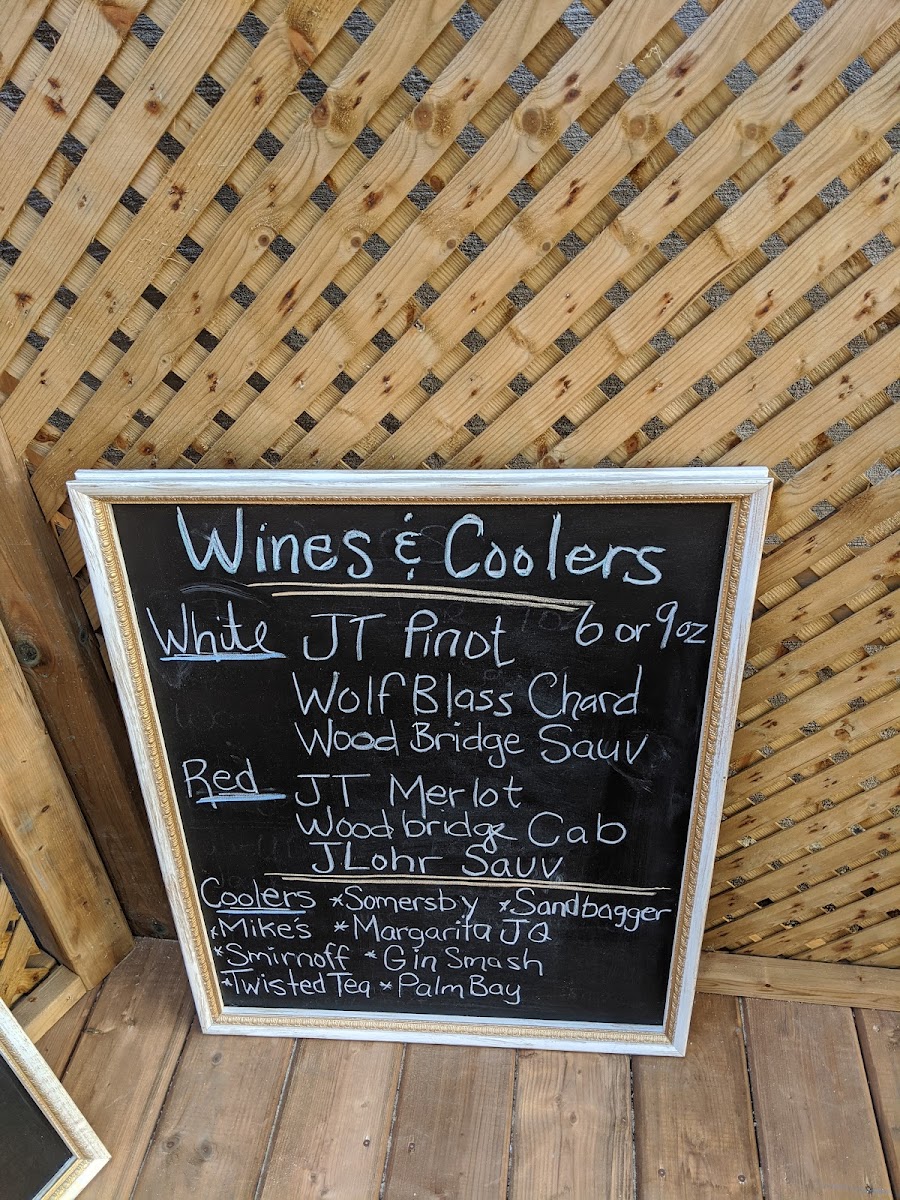 Wines & Coolers
White JT Pinot 6 or 9oz
Wolf Blass Chard
Wood Bridge Sauv
Red JT Merlot
Woodbridge Cab
JLohr Sauv
Coolers *Somersby *Sandbagger
*Mikes *Margarita JQ
*Smirnoff *Gin Smash
*Twisted Tea *Palm Bay